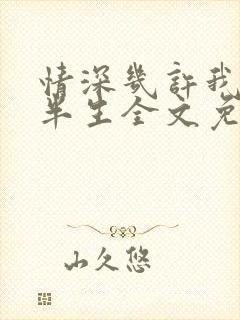 情深几許我
半生全文免
山久悠